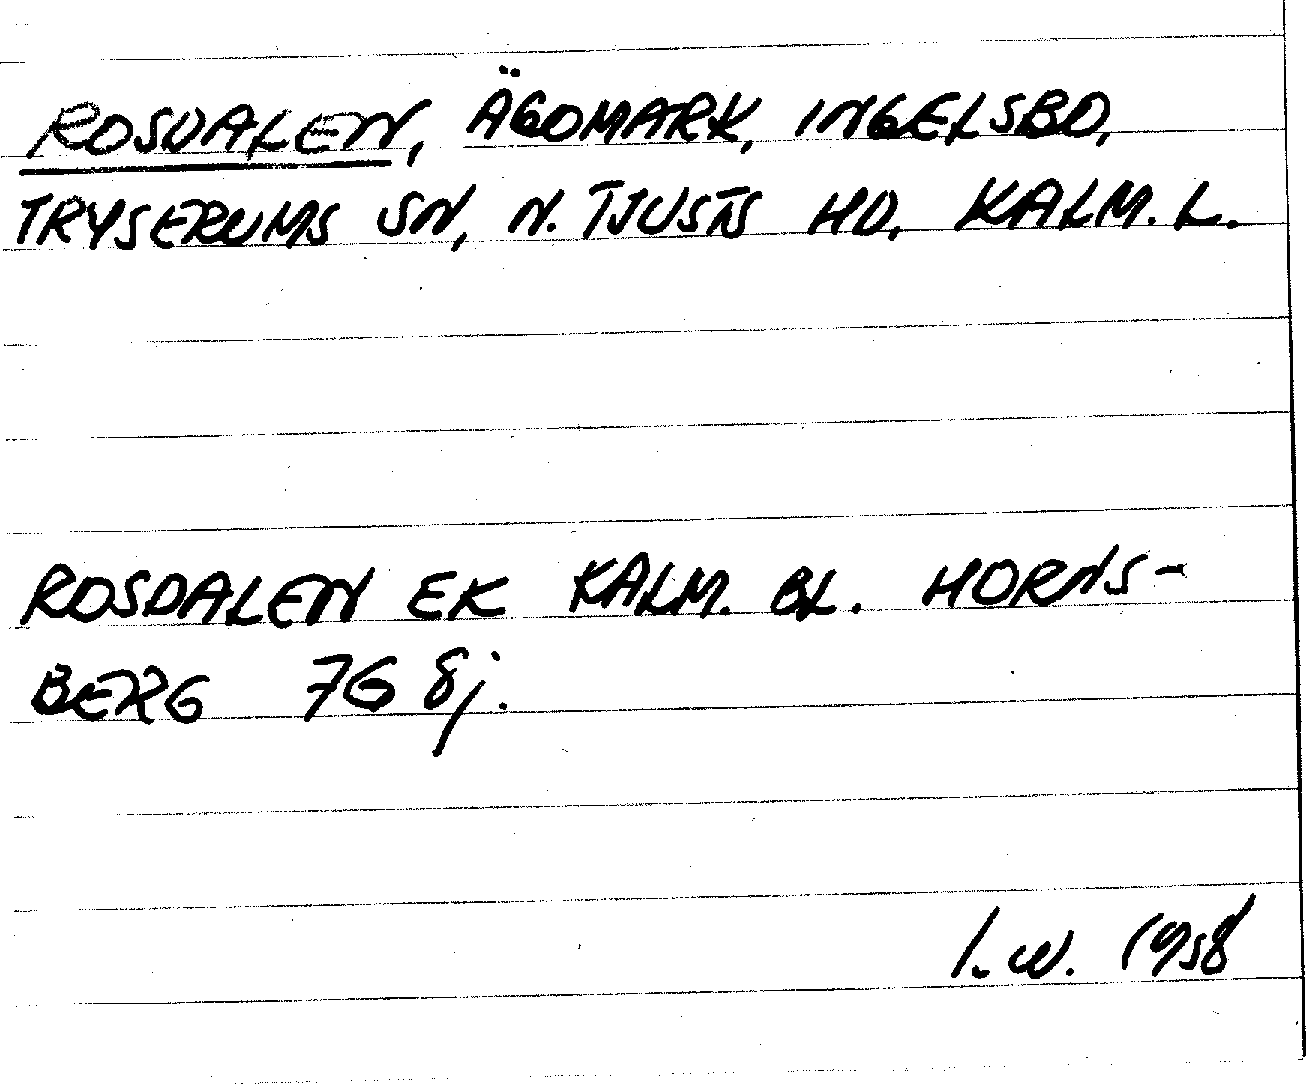 ROSDALEN, ÄGOMARK, INGELSBO,
TRYSERUMS SN, N. TJUSTS HD, KALM. L.
ROSDALEN EK KALM. BL. HORNS-
BERG 7G 8j.
I. W. 1958